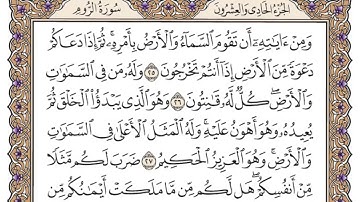 الجزء الحادي والعشرون سورة الروم
وَمِنْ ءَايَٰتِهِۦٓ أَن تَقُومَ ٱلسَّمَآءُ وَٱلْأَرْضُ بِأَمْرِهِۦ ۚ ثُمَّ إِذَا دَعَاكُمْ
دَعْوَةً مِّنَ ٱلْأَرْضِ إِذَآ أَنتُمْ تَخْرُجُونَ ٢٥ وَلَهُۥ مَن فِى ٱلسَّمَٰوَٰتِ
وَٱلْأَرْضِ ۖ كُلٌّ لَّهُۥ قَٰنِتُونَ ٢٦ وَهُوَ ٱلَّذِى يَبْدَؤُا۟ ٱلْخَلْقَ ثُمَّ
يُعِيدُهُۥ وَهُوَ أَهْوَنُ عَلَيْهِ ۚ وَلَهُ ٱلْمَثَلُ ٱلْأَعْلَىٰ فِى ٱلسَّمَٰوَٰتِ
وَٱلْأَرْضِ ۚ وَهُوَ ٱلْعَزِيزُ ٱلْحَكِيمُ ٢٧ ضَرَبَ لَكُم مَّثَلًا
مِّنْ أَنفُسِكُمْ ۖ هَل لَّكُم مِّن مَّا مَلَكَتْ أَيْمَٰنُكُم مِّن